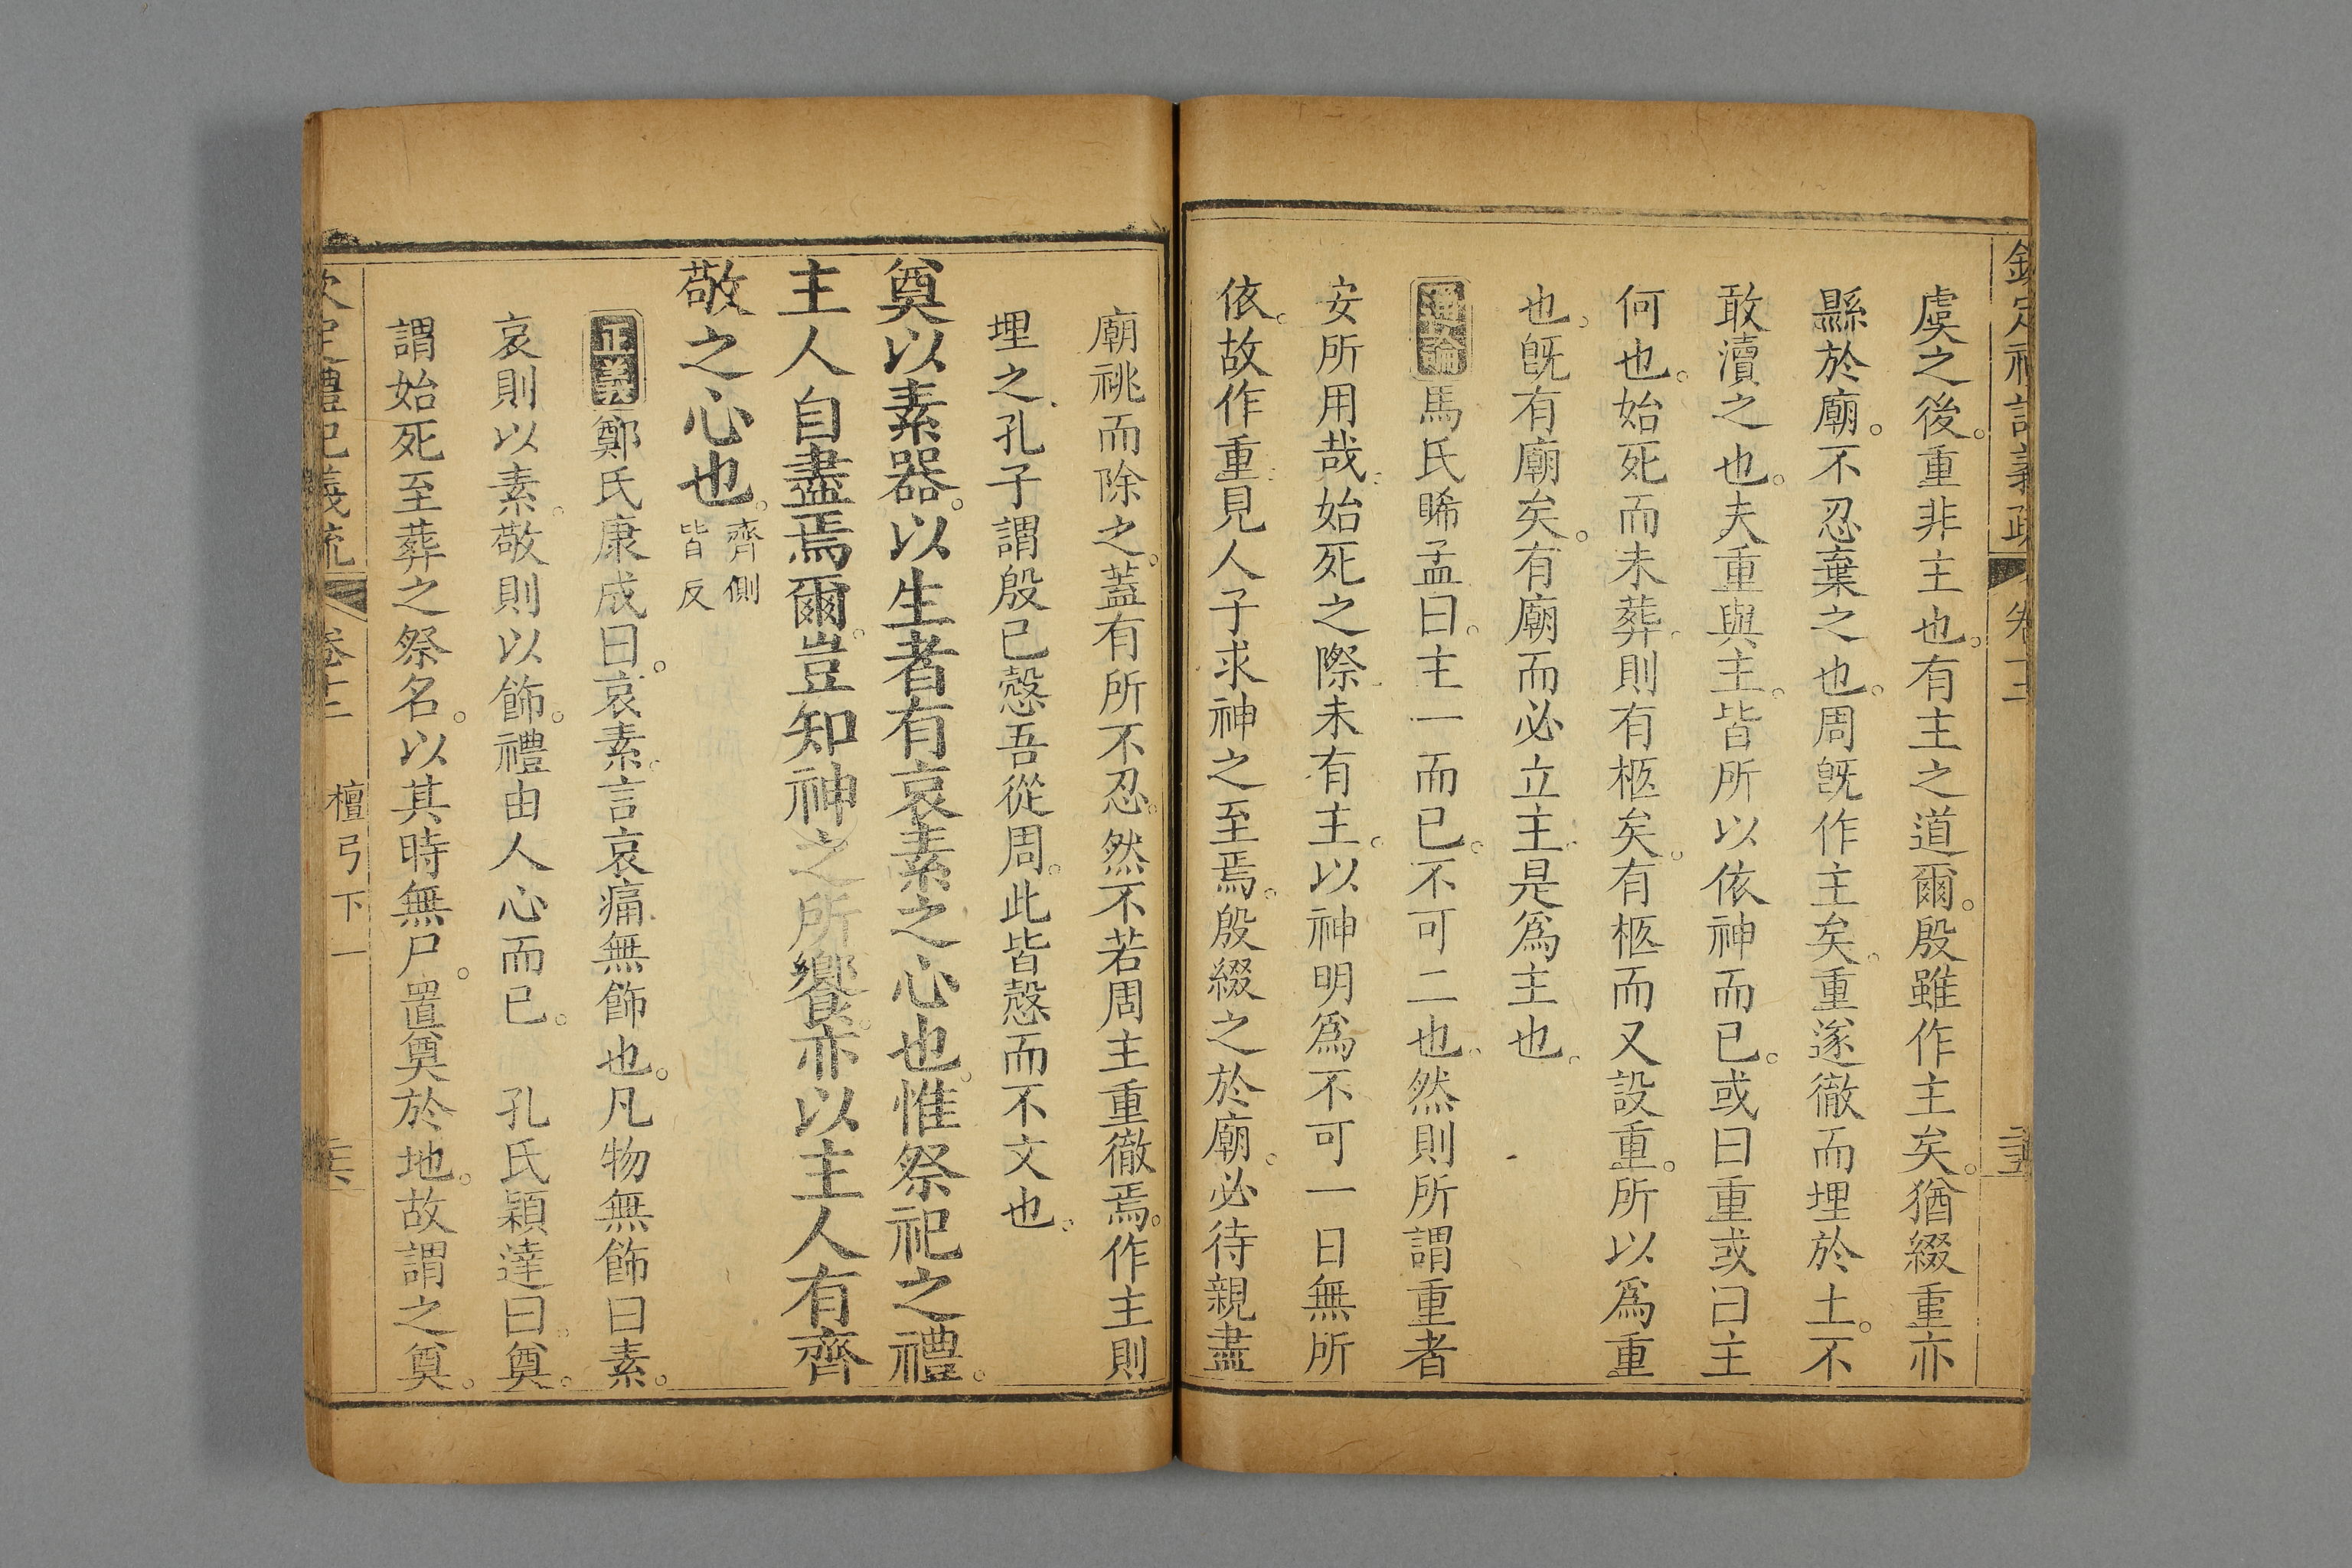 欽定禮記義疏 卷十二 二十五
虞之後。重非主也。有主之道爾。殷雖作主矣。猶綴重亦
縣於廟。不忍棄之也。周既作主矣。重遂徹而埋於土。不
敢瀆之也。夫重與主。皆所以依神而已。或曰重或曰主
何也。始死而未葬。則有柩矣。有柩而又設重。所以爲重
也。既有廟矣。有廟而必立主。是爲主也。
通論馬氏睎孟曰。主一而已。不可二也。然則所謂重者
安所用哉。始死之際。未有主。以神明爲不可一日無所
依。故作重。見人子求神之至焉。殷綴之於廟。必待親盡
廟祧而除之。蓋有所不忍。然不若周主重徹焉。作主則
埋之。孔子謂殷已慤吾從周。此皆慤而不文也。
奠以素器。以生者有哀素之心也。惟祭祀之禮。
主人自盡焉爾。豈知神之所饗。亦以主人有齊
敬之心也。齊側皆反
正義鄭氏康成曰。哀素。言哀痛無飾也。凡物無飾曰素。
哀則以素。敬則以飾。禮由人心而已。 孔氏穎達曰。奠。
謂始死至葬之祭名。以其時無尸。置奠於地。故謂之奠。
欽定禮記義疏 卷十二 檀弓下一 二十六